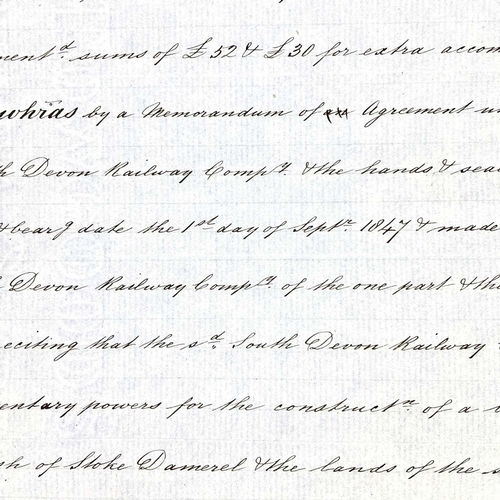 ment.d sums of £52 & £30 for extra accom
whras by a Memorandum of Agreement un
h Devon Railway Compy. & the hands & sea
& bearg date the 1st day of Septr. 1847 & made
Devon Railway Compy. of the one part & the
eciting that the sd. South Devon Railway
entary powers for the constructn. of a
sh of Stoke Damerel & the lands of the